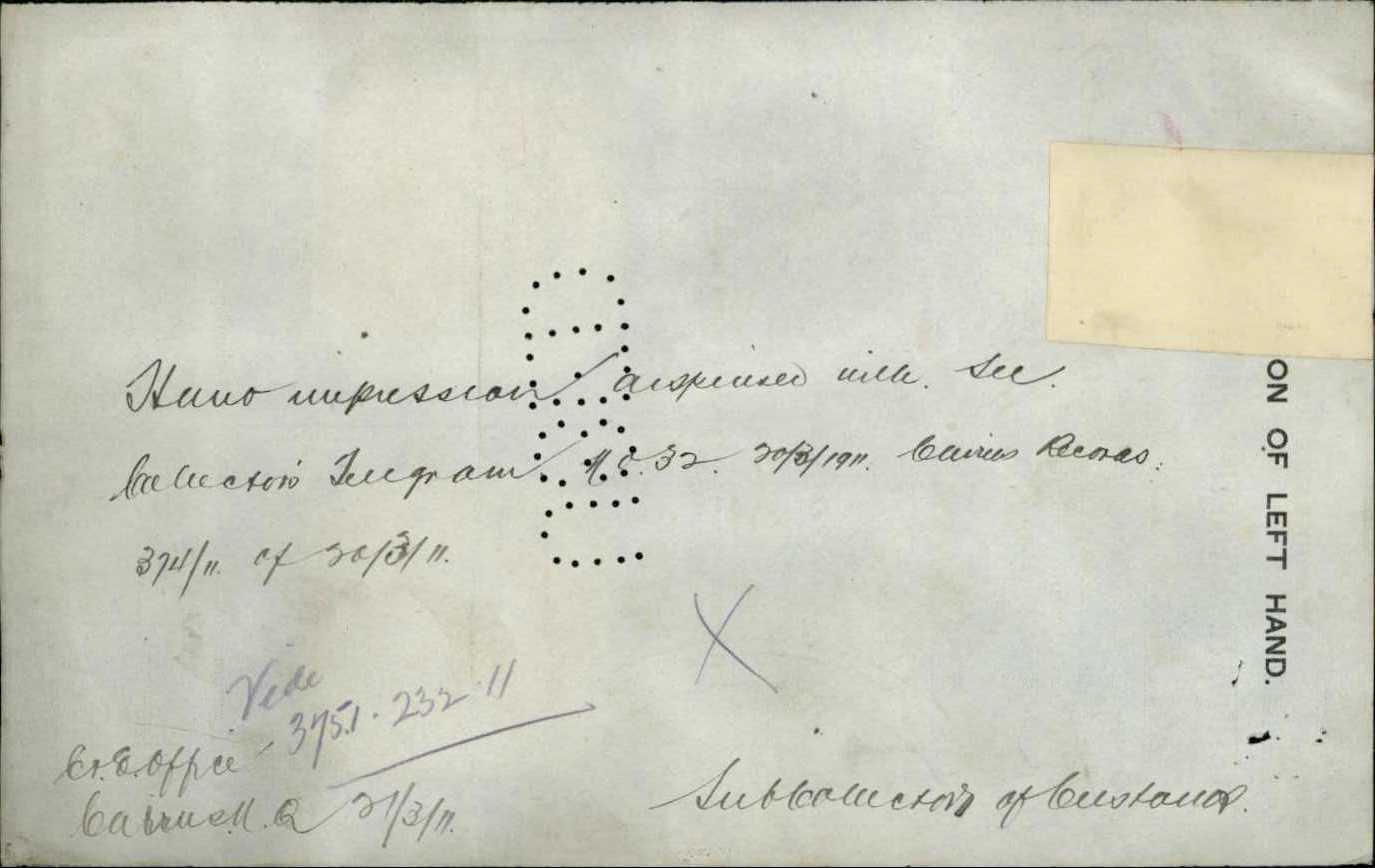 Hand impression dispensed with. See.
Collectors Telegram N.O. 32. 20/3/1911. Cairns Records.
374/11. of 20/3/11.
X
Vide
3751. 232.11
C. & E. Office
Cairns N.Q 21/3/11.
Sub Collector of Customs.
ON OF LEFT HAND.